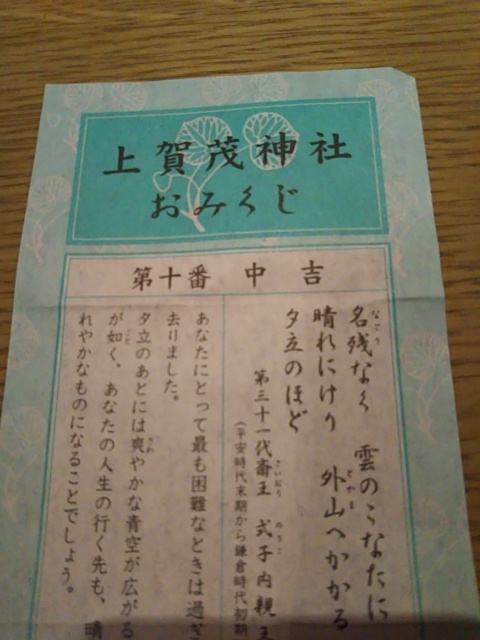 上賀茂神社
おみくじ
第十番 中吉
名残なく 雲のこなたに
晴れにけり 外山へかかる
夕立のほど
第三十一代斎王 式子内親王
(平安時代末期から鎌倉時代初期
あなたにとって最も困難なときは過ぎ
去りました。
夕立のあとには爽やかな青空が広がる
が如く、あなたの人生の行く先も、晴
れやかなものになることでしょう。